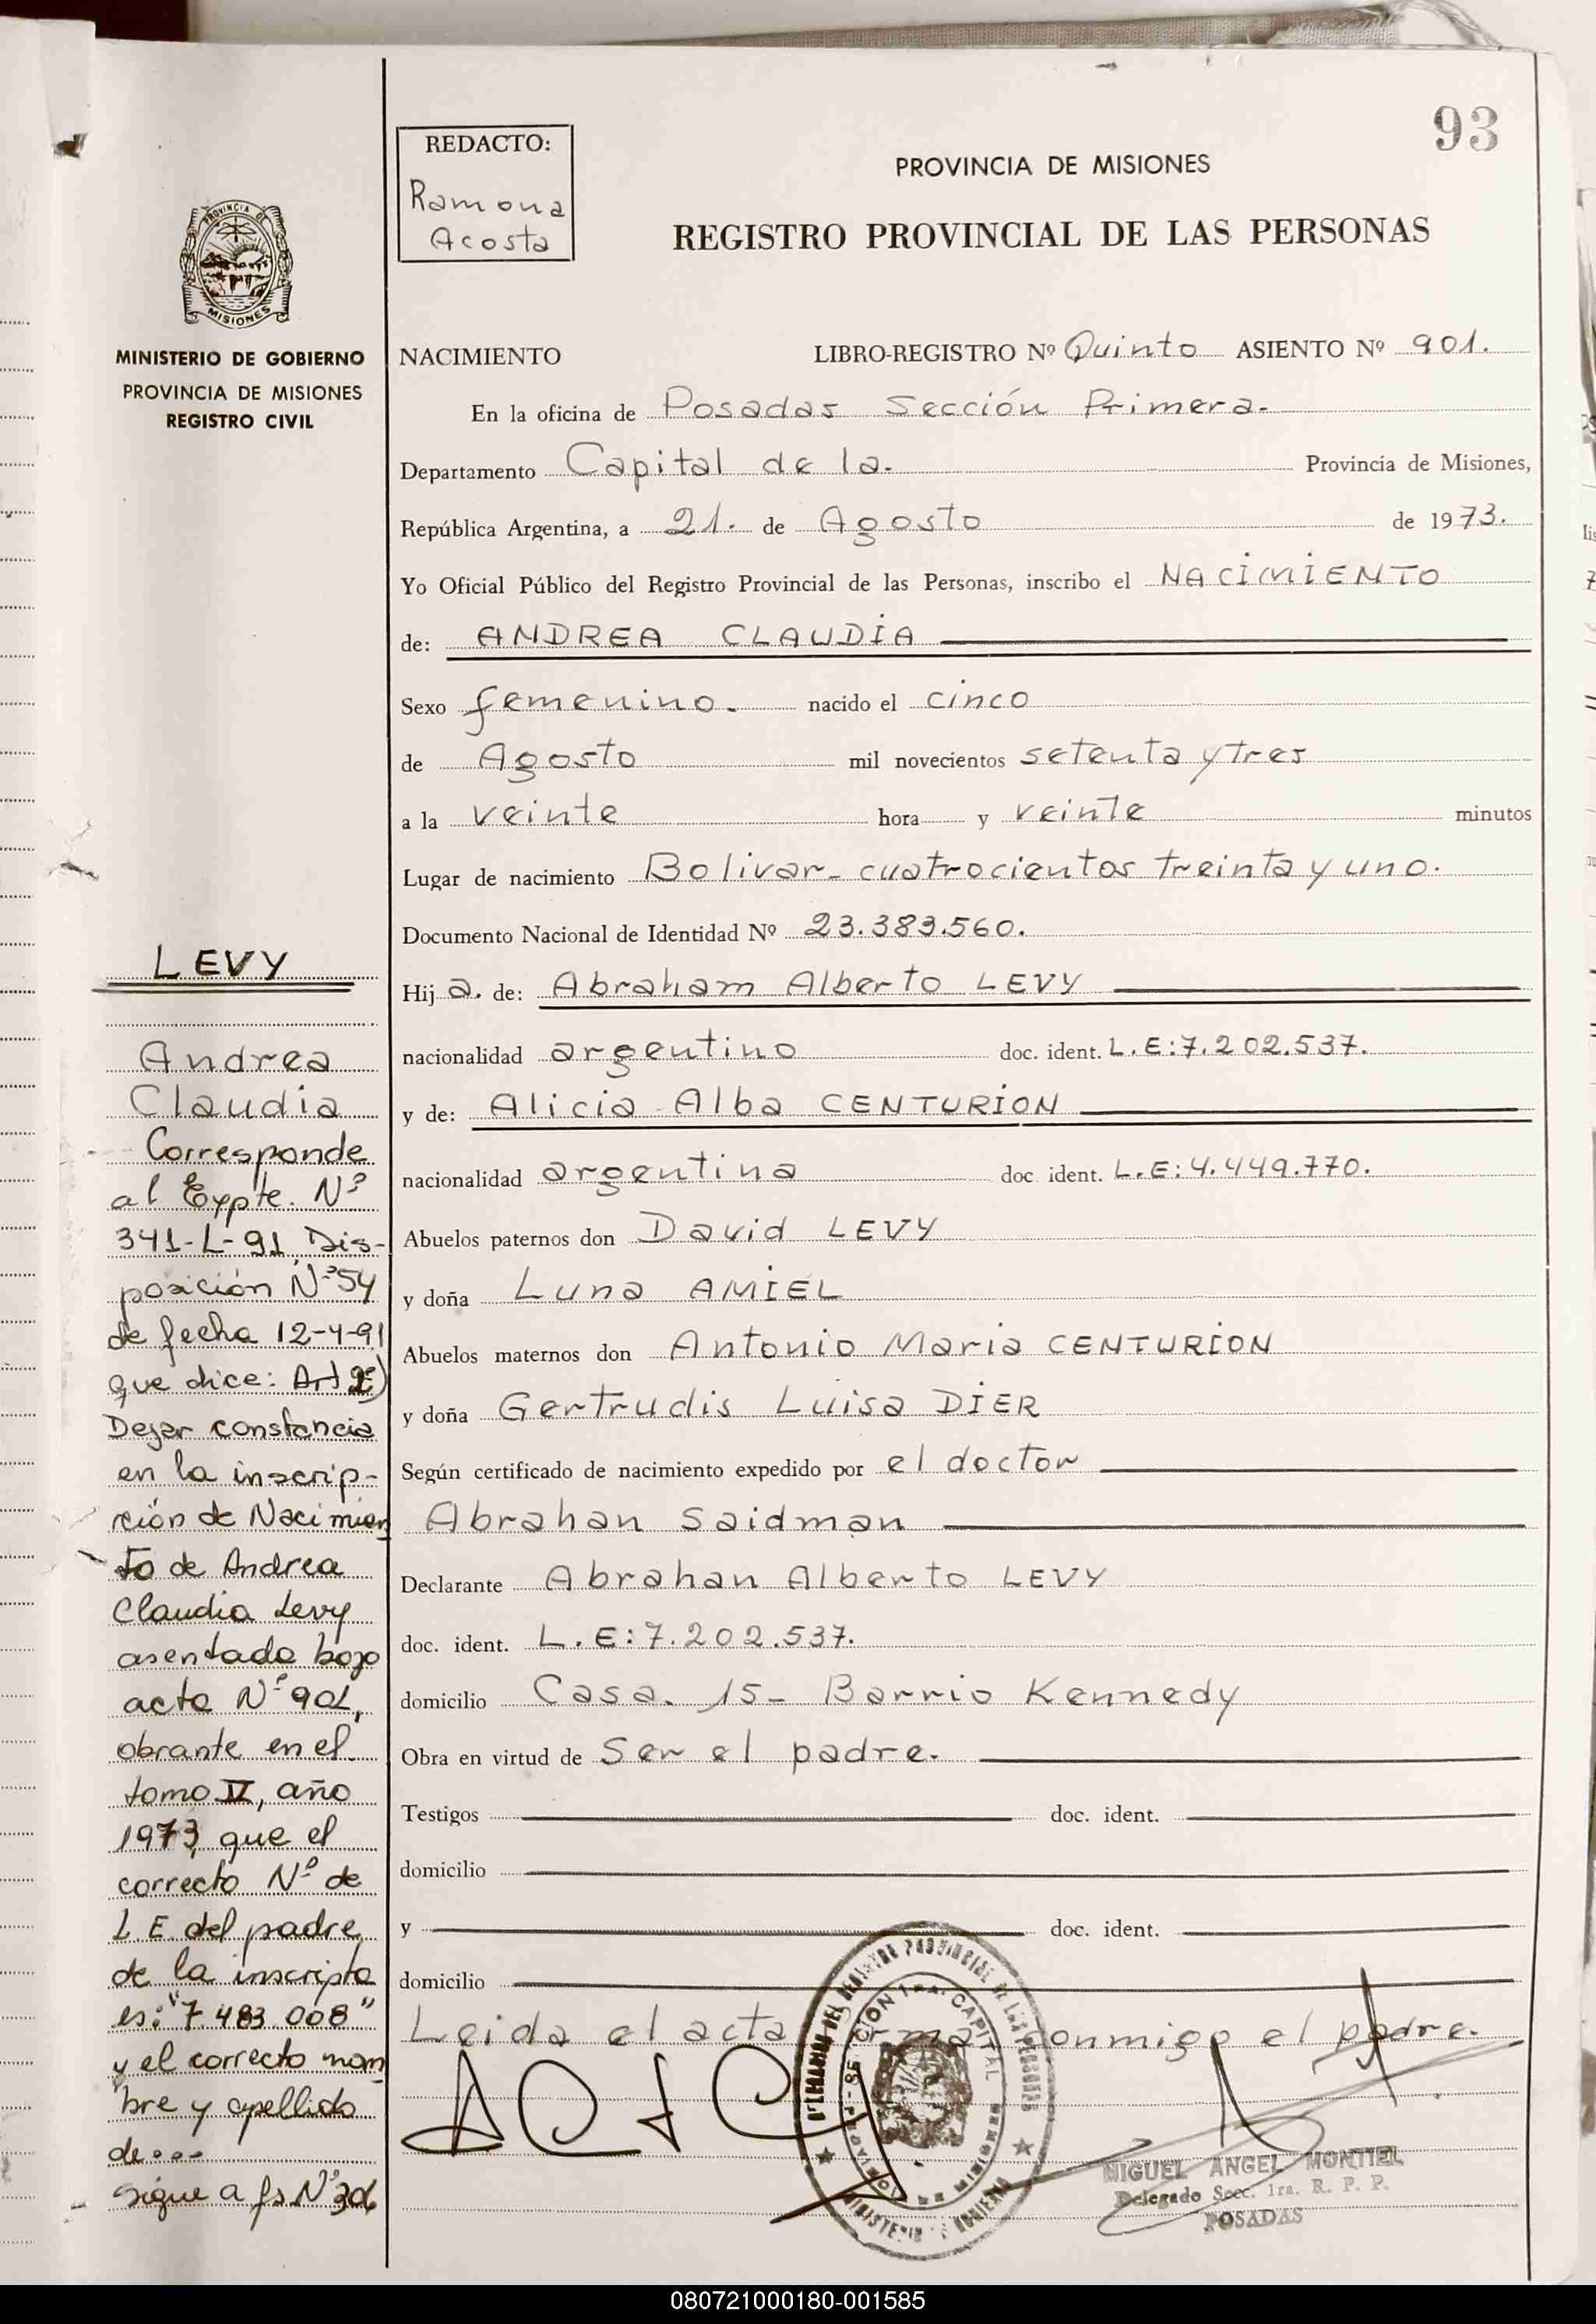 93
REDACTO:
Ramona
Acosta
PROVINCIA DE MISIONES
REGISTRO PROVINCIAL DE LAS PERSONAS
PROVINCIA DE
MISIONES
MINISTERIO DE GOBIERNO
PROVINCIA DE MISIONES
REGISTRO CIVIL
NACIMIENTO LIBRO-REGISTRO Nº Quinto ASIENTO Nº 901.
En la oficina de Posadas Sección Primera.
Departamento Capital de la. Provincia de Misiones,
República Argentina, a 21. de Agosto de 1973.
Yo Oficial Público del Registro Provincial de las Personas, inscribo el NACIMIENTO
de: ANDREA CLAUDIA
Sexo femenino. nacido el cinco
de Agosto mil novecientos setenta y tres
a la veinte hora y veinte minutos
Lugar de nacimiento Bolivar - cuatrocientos treinta y uno.
Documento Nacional de Identidad Nº 23.383.560.
Hij a. de: Abraham Alberto LEVY
nacionalidad argentino doc. ident. L.E:7.202.537.
y de: Alicia Alba CENTURION
nacionalidad argentina doc. ident. L.E:4.449.770.
Abuelos paternos don David LEVY
y doña Luna AMIEL
Abuelos maternos don Antonio Maria CENTURION
y doña Gertrudis Luisa DIER
Según certificado de nacimiento expedido por el doctor
Abrahan Saidman
Declarante Abrahan Alberto LEVY
doc. ident. L.E:7.202.537.
domicilio Casa. 15- Barrio Kennedy
Obra en virtud de Ser el padre.
Testigos doc. ident.
domicilio
y doc. ident.
domicilio
Leida el acta conmigo el padre.
MIGUEL ANGEL MONTIEL
Delegado Secc. 1ra. R. P. P.
POSADAS
LEVY
Andrea
Claudia
Corresponde
al Expte. Nº
341-L-91 Dis-
posición Nº 54
de fecha 12-4-91
que dice: Art
Dejar constancia
en la inscrip-
ción de Nacimien
to de Andrea
Claudia Levy
asentada bajo
acta Nº 901,
obrante en el
tomo V, año
1973, que el
correcto Nº de
L.E. del padre
de la inscripta
es: "7.483.008"
y el correcto nom
bre y apellido
de...
sigue a fs Nº 306
080721000180-001585